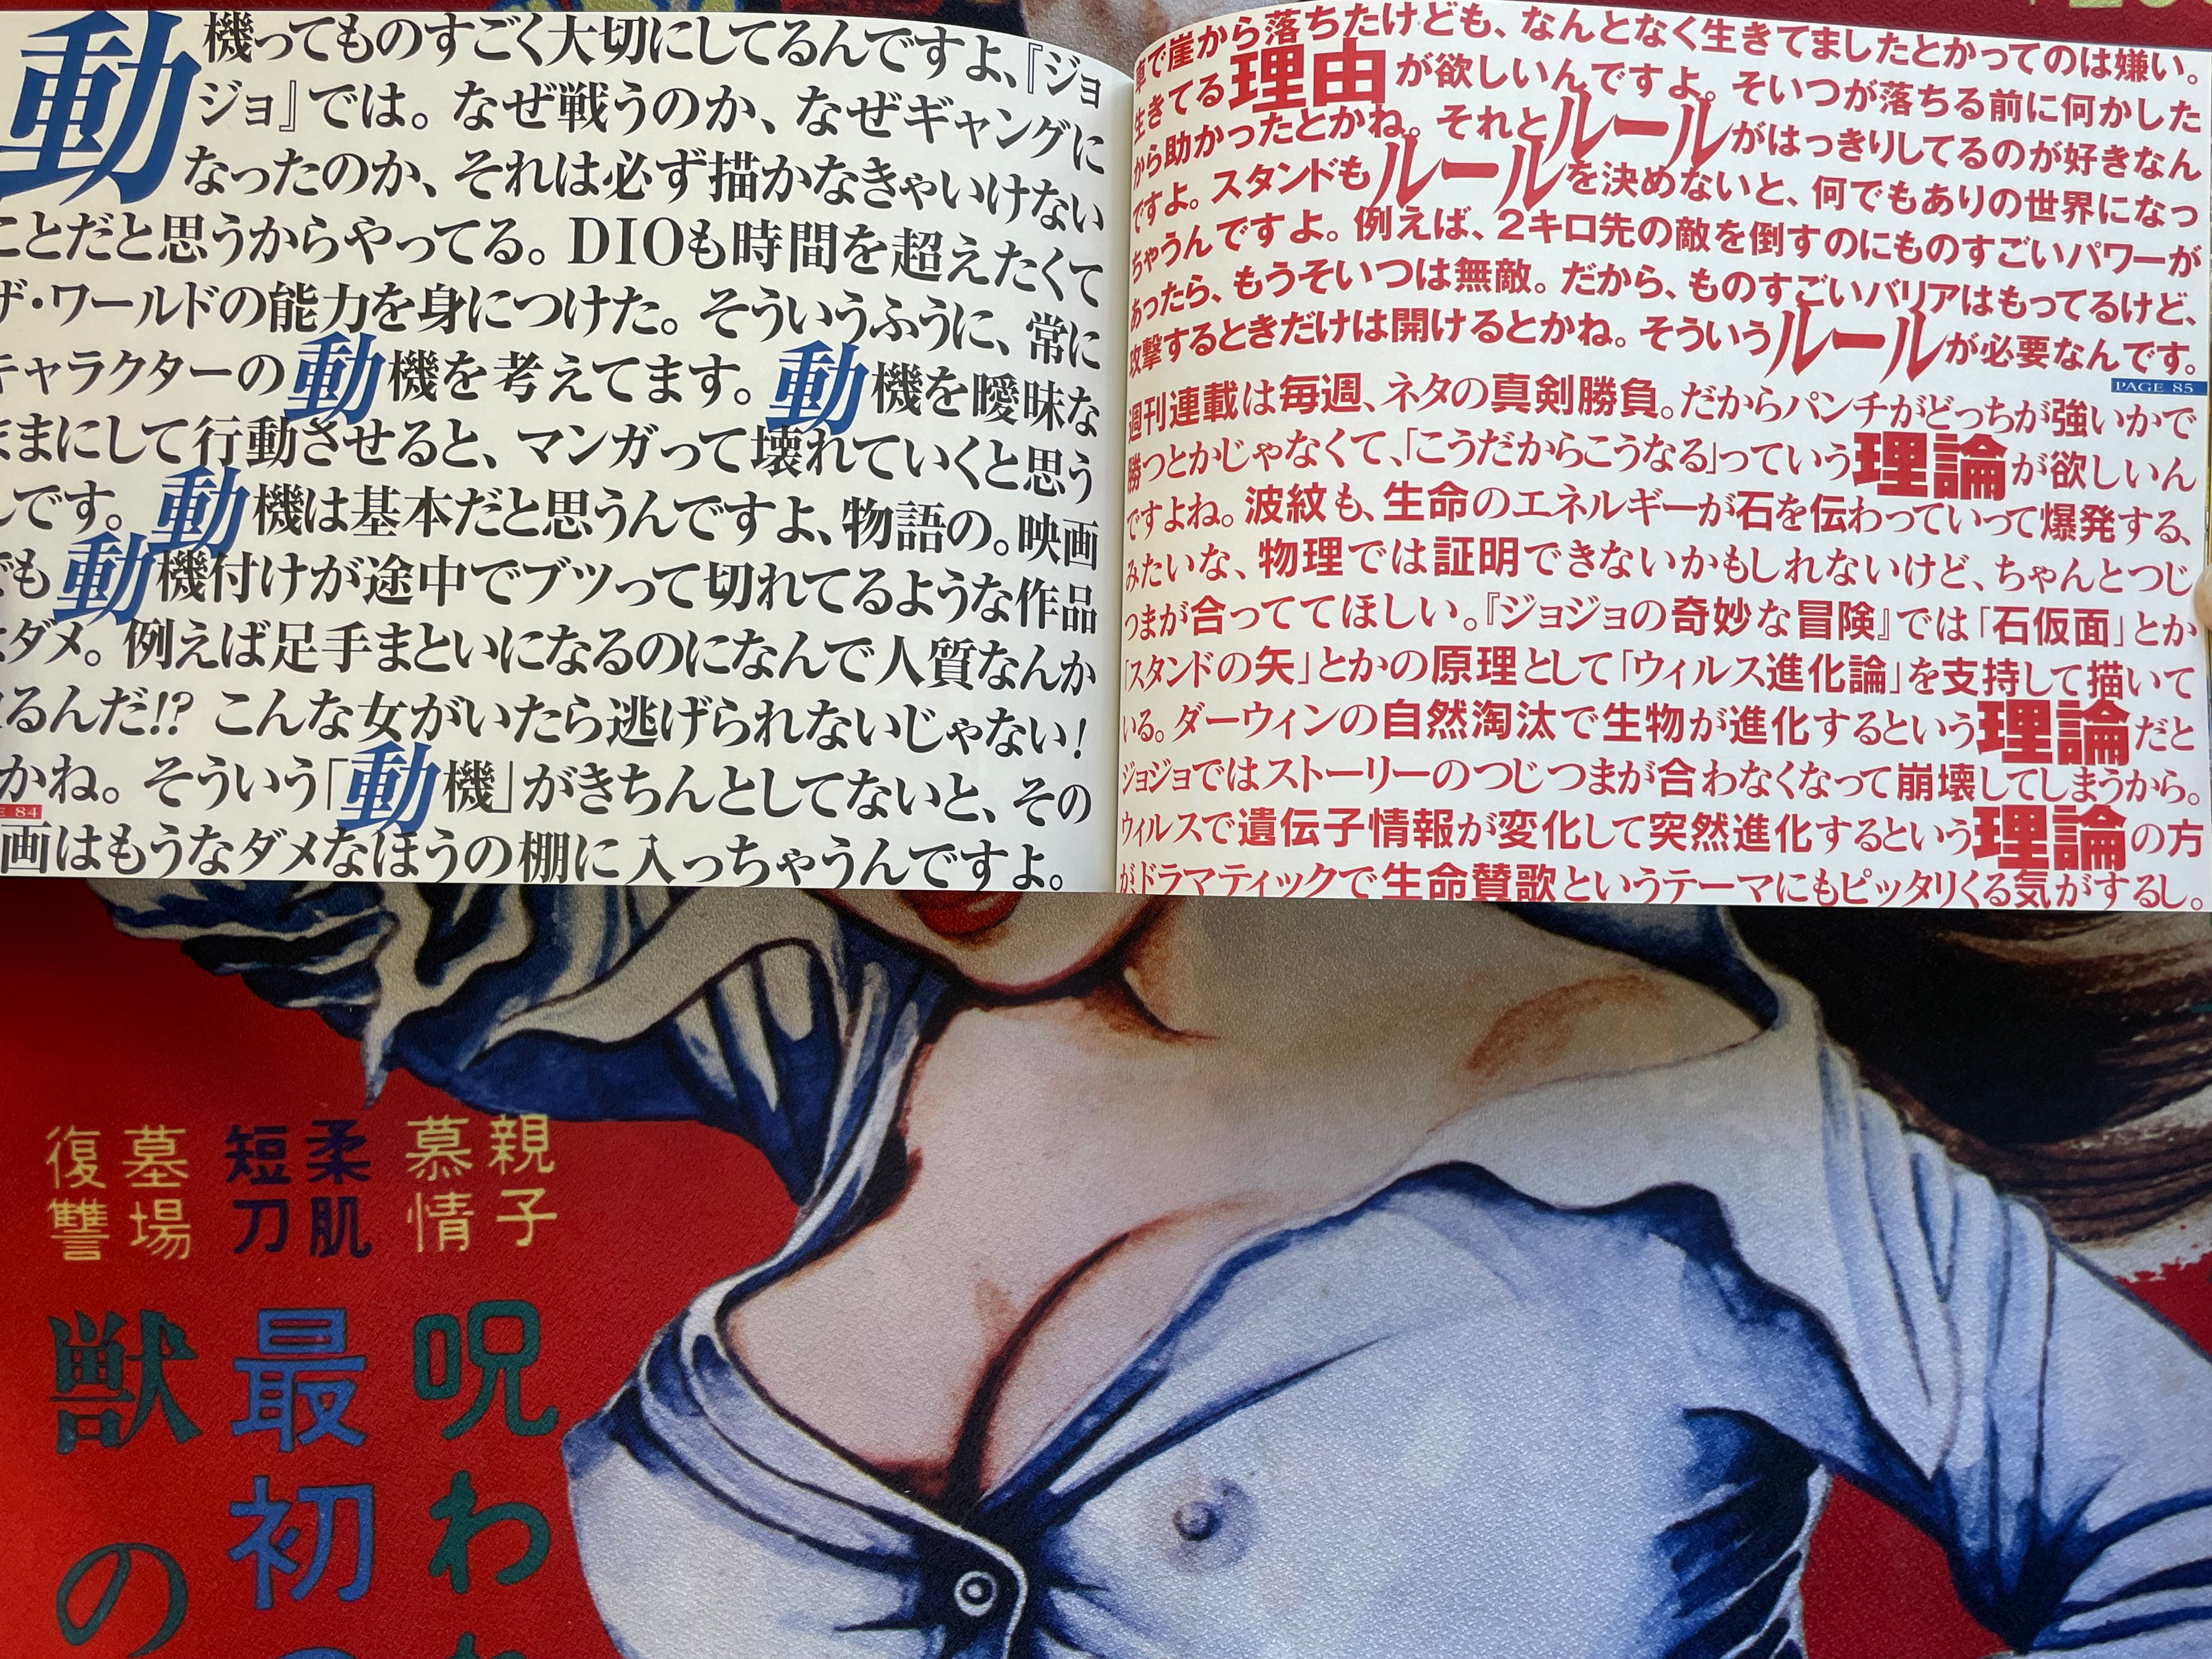 動機ってものすごく大切にしてるんですよ、『ジョ
ジョ』では。なぜ戦うのか、なぜギャングに
なったのか、それは必ず描かなきゃいけない
ことだと思うからやってる。DIOも時間を超えたくて
ザ・ワールドの能力を身につけた。そういうふうに、常に
キャラクターの動機を考えてます。動機を曖昧な
ままにして行動させると、マンガって壊れていくと思う
んです。動機は基本だと思うんですよ、物語の。映画
でも動機付けが途中でブツって切れてるような作品
はダメ。例えば足手まといになるのになんで人質なんか
るんだ!? こんな女がいたら逃げられないじゃない!
かね。そういう「動機」がきちんとしてないと、その
84
画はもうなダメなほうの棚に入っちゃうんですよ。
車で崖から落ちたけども、なんとなく生きてましたとかってのは嫌い。
生きてる理由が欲しいんですよ。そいつが落ちる前に何かした
から助かったとかね。それとルールがはっきりしてるのが好きなん
ですよ。スタンドもルールを決めないと、何でもありの世界になっ
ちゃうんですよ。例えば、2キロ先の敵を倒すのにものすごいパワーが
あったら、もうそいつは無敵。だから、ものすごいバリアはもってるけど、
攻撃するときだけは開けるとかね。そういうルールが必要なんです。
PAGE 85
週刊連載は毎週、ネタの真剣勝負。だからパンチがどっちが強いかで
勝つとかじゃなくて、「こうだからこうなる」っていう理論が欲しいん
ですよね。波紋も、生命のエネルギーが石を伝わっていって爆発する、
みたいな、物理では証明できないかもしれないけど、ちゃんとつじ
つまが合っててほしい。『ジョジョの奇妙な冒険』では「石仮面」とか
「スタンドの矢」とかの原理として「ウィルス進化論」を支持して描いて
いる。ダーウィンの自然淘汰で生物が進化するという理論だと
ジョジョではストーリーのつじつまが合わなくなって崩壊してしまうから。
ウィルスで遺伝子情報が変化して突然進化するという理論の方
がドラマティックで生命賛歌というテーマにもピッタリくる気がするし。
親子慕情
呪わ
柔肌短刀
最初
墓場復讐
獣の